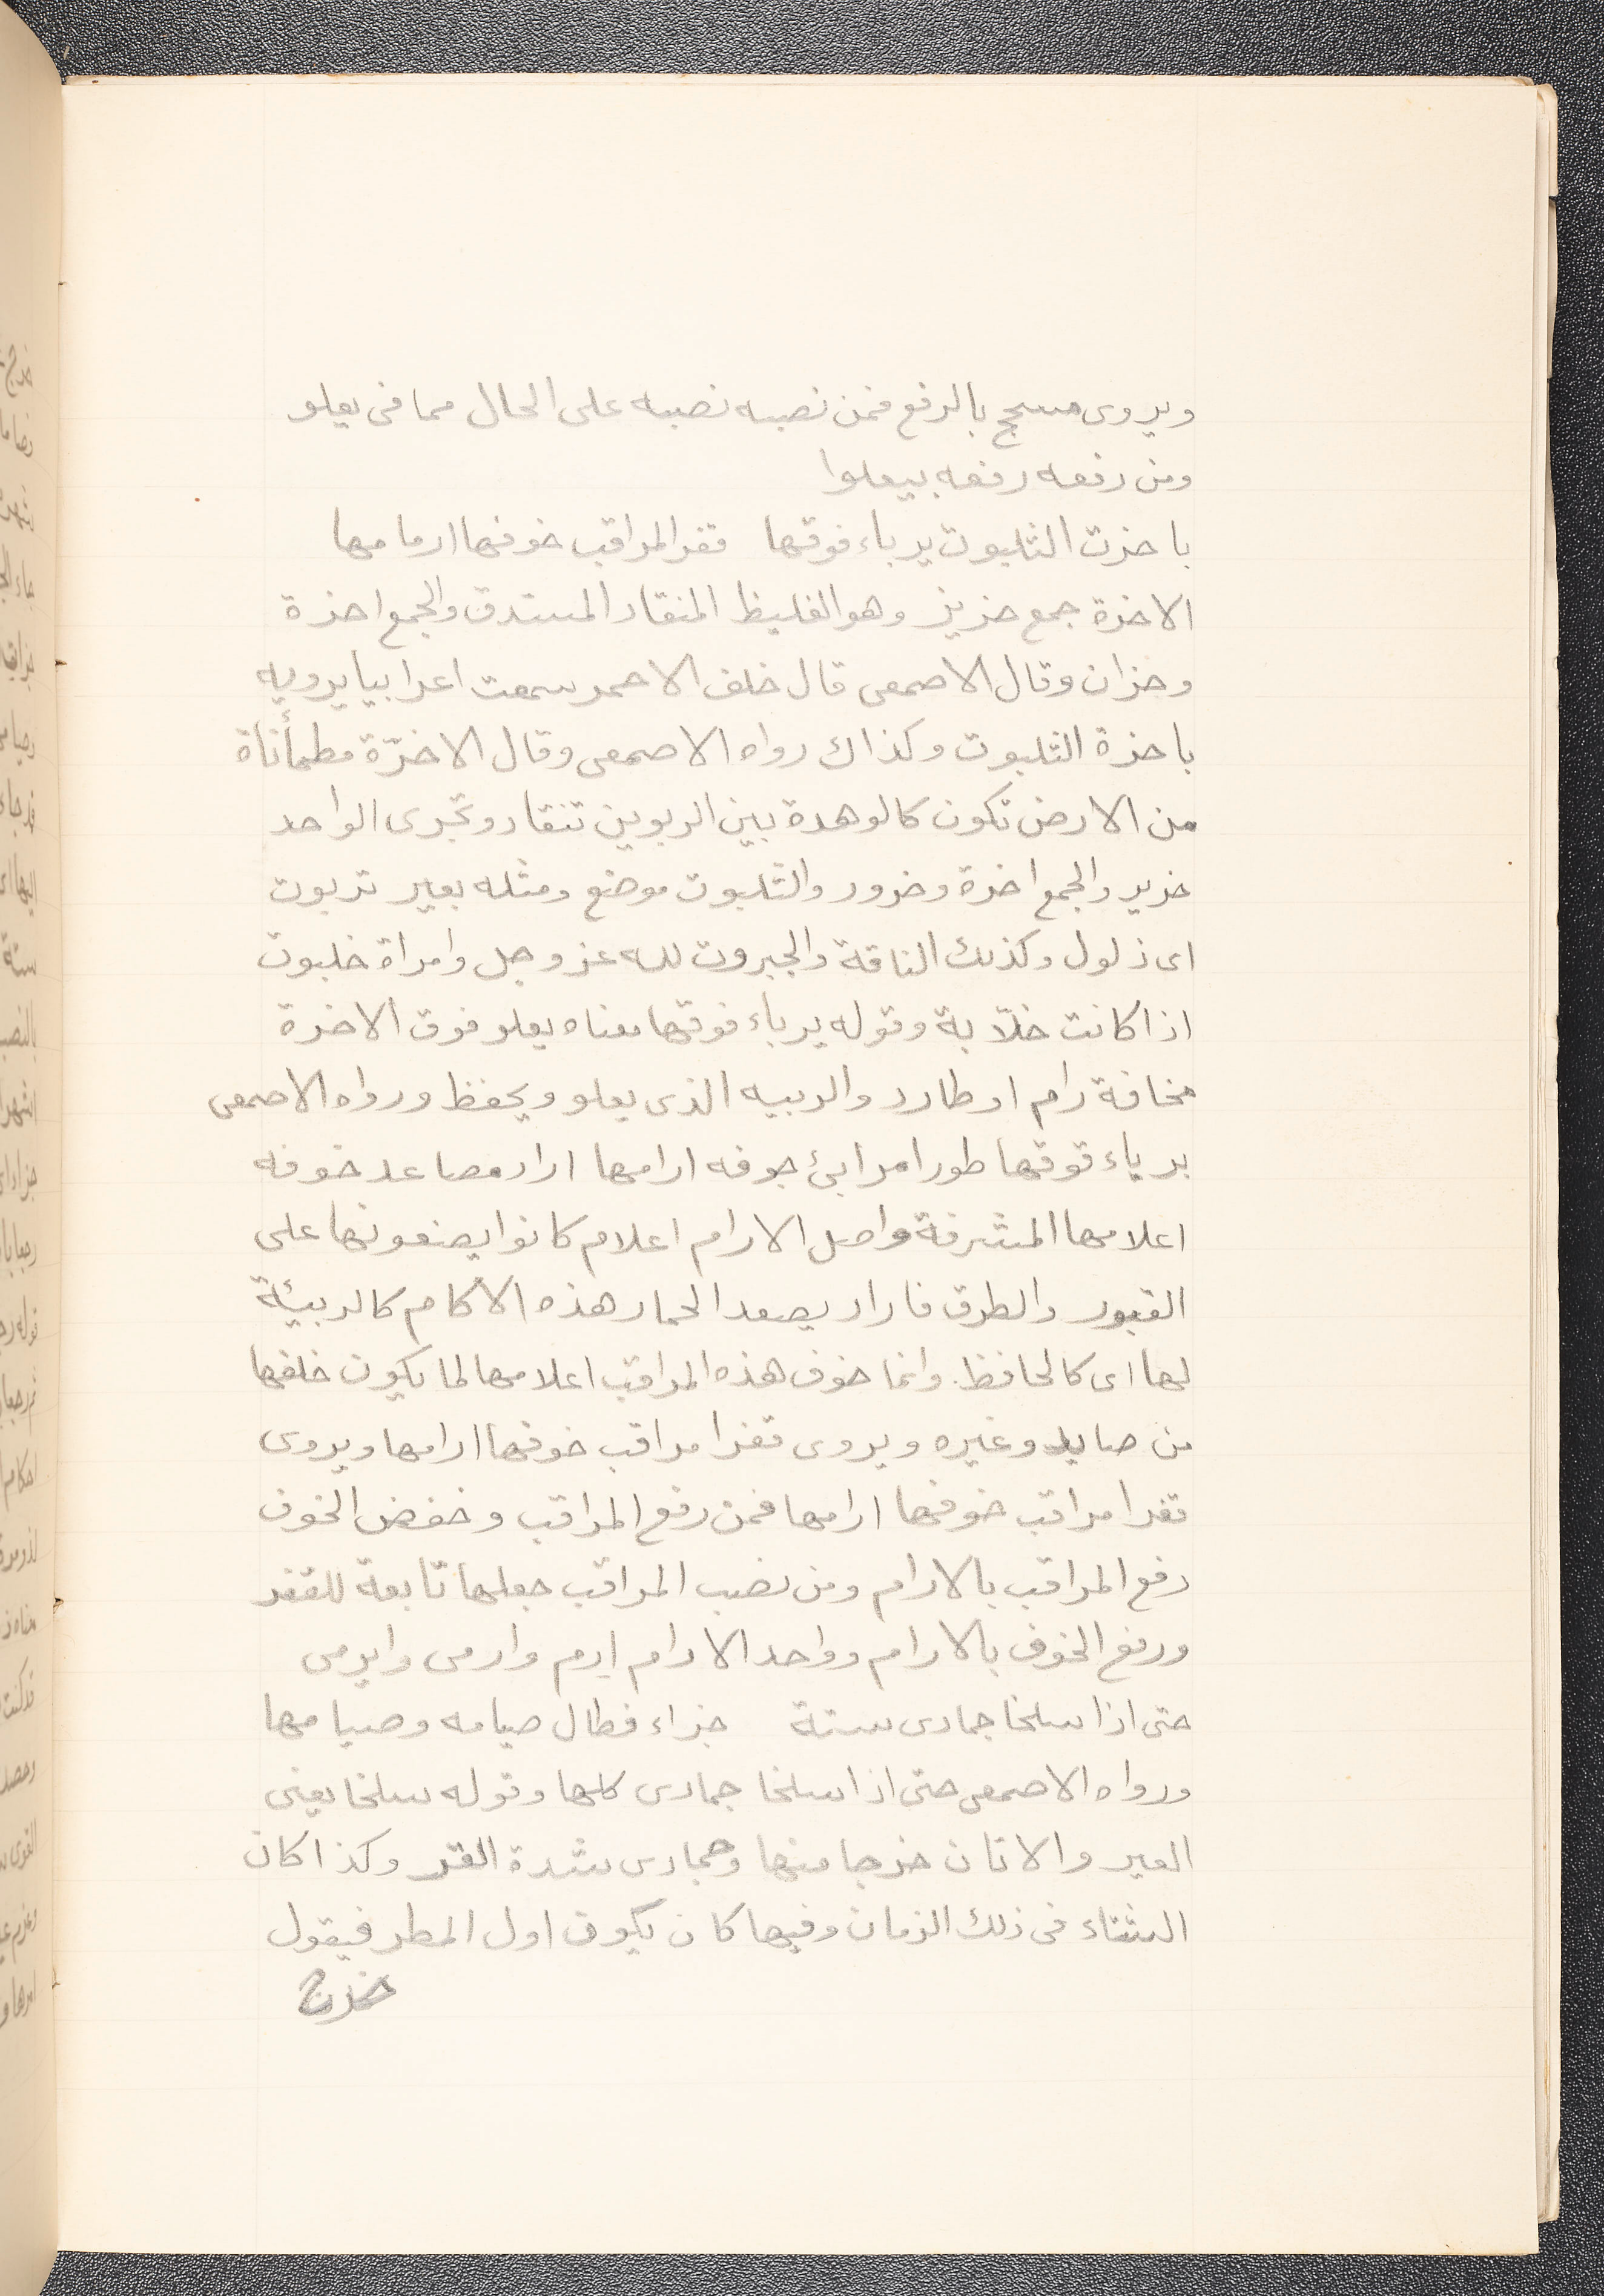 ويروى مسحج بالرفع فمن نصبه نصبه على الحال مما فى يعلو
ومن رفعه رفعه بيعلوا
باحزت الثلبوت يرباء فوقها قفر المراقب خوفها ارمامها
الاخزة جمع حزيز وهو الغليظ المنقاد المستدق والجمع احزة
وحزان وقال الاصمعى قال خلف الاحمر سمعت اعرابيا يرويه
باحزة الثلبوت وكذاك رواه الاصمعى وقال الاخرّة مطمأناة
من الارض تكون كالوهدة بين الربوين تنقاد وتجرى الواحد
خرير والجمع اخرة وخرور والثلبوت موضع ومثله بعير تربوت
اى ذلول وكذلك الناقة والجبروت لله عز وجل وامراة خلبوت
اذا كانت خلّابة وقوله يرباء فوقها معناه يعلو فوق الاخرة
مخافة رام او طارد والربيه الذى يعلو ويحفظ ورواه الاصمعى
برباء قوقها طورا مرابئ جوفه ارامها اراد مصاعد خوفه
اعلامها المشرفة واصل الارام اعلام كانوا يضعونها على
القبور والطرق فاراد يصعد الحمار هذه الاكام كالربيئة
لها اى كالحافظ. وانما خوف هذه المراقب اعلامها لما يكون خلفها
من صايد وغيره ويروى قفرا مراقب خوفها ارامها ويروى
قفرا مراقب خوفها ارامها فمن رفع المراقب وخفض الخوف
رفع المراقب بالارام ومن نصب المراقب جعلها تابعة للقفر
ورفع الخوف بالارام وواحد الارام ارم وارمى وايرمى
حتى اذا سلخا جمادى ستة جزاء فطال صيامه وصيامها
ورواه الاصمعى حتى اذا سلخا جمادى كلها وقوله سلخا يعنى
العير والاتان خرجا منها وجمادى شدة القر وكذا كان
الشتاء فى ذلك الزمان وفيها كان يكون اول المطر فيقول
خرج